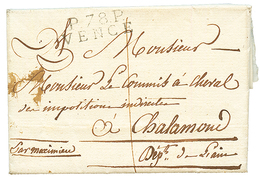 P.78.P.
VENCE
Monsieur
Monsieur Le Commis à cheval
des impositions indirectes
à Chalamond
Par meximieu
Dépt. de L'ain